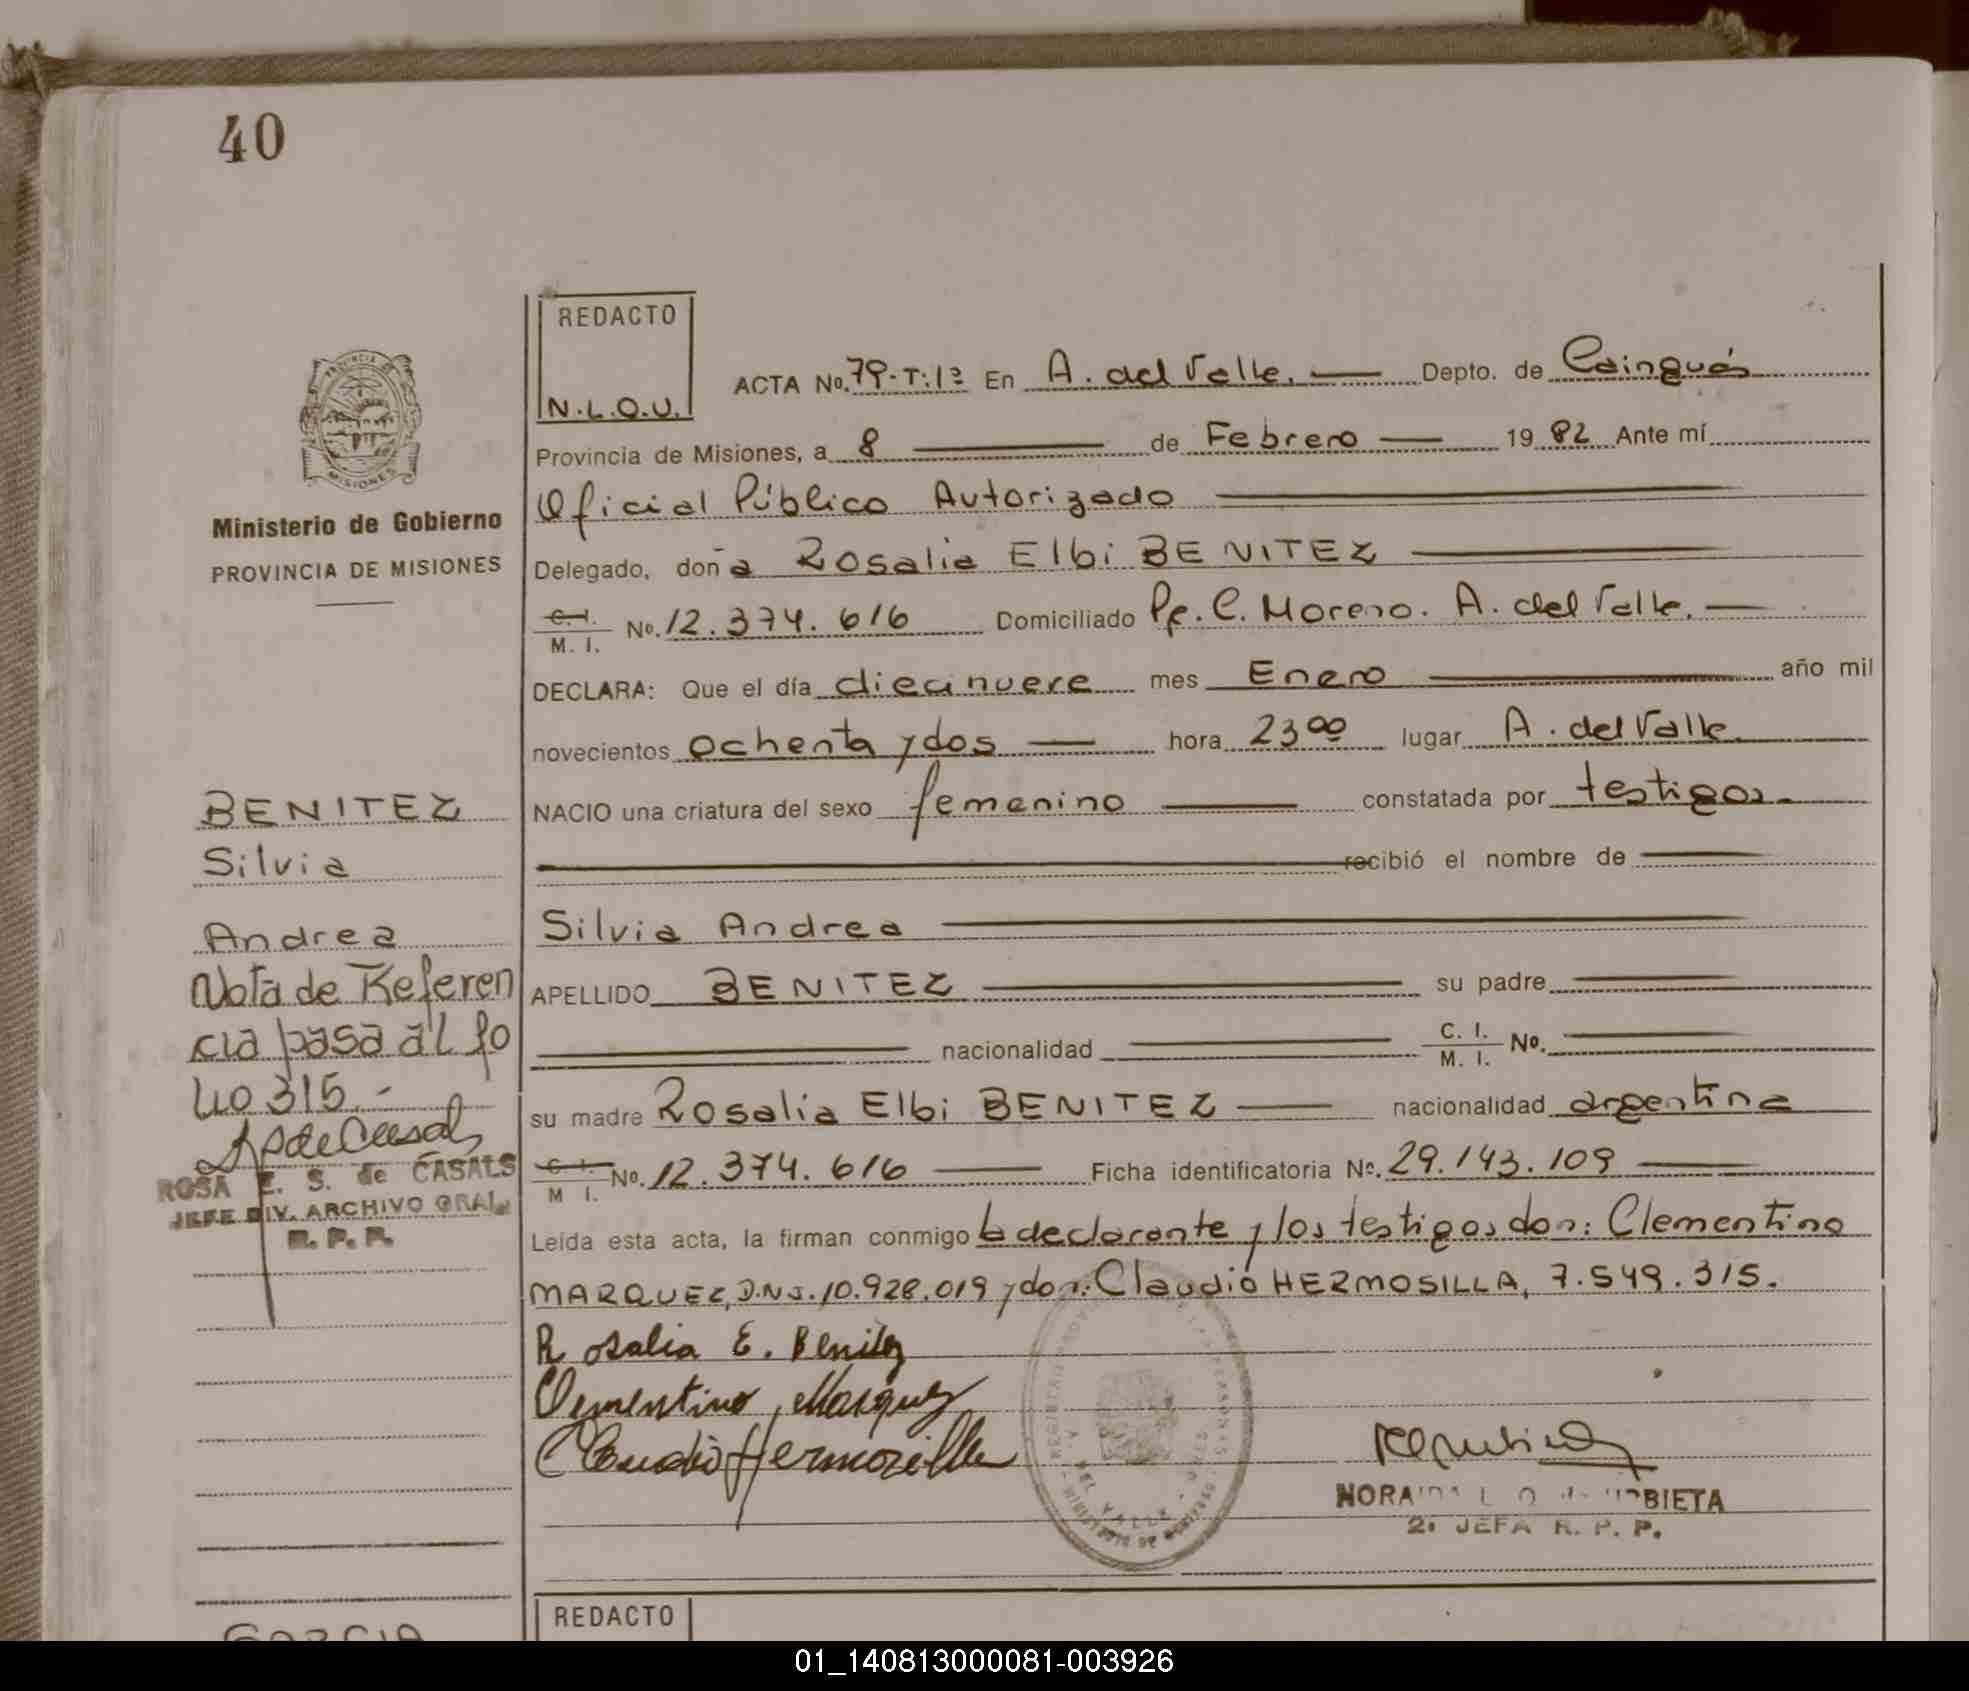 40
REDACTO
N.L.Q.U.
ACTA No. 79-T:1ª En A. del Valle. Depto. de Cainguás
Provincia de Misiones, a 8 de Febrero 1982 Ante mí
Oficial Público Autorizado
Delegado, doña Rosalia Elbi BENITEZ
C. I. M. I. No. 12.374.616 Domiciliado Pje. C. Moreno. A. del Valle.
DECLARA: Que el día diecinueve mes Enero año mil
novecientos ochenta y dos hora 23 00 lugar A. del Valle
NACIO una criatura del sexo femenino constatada por testigos.
recibió el nombre de
Silvia Andrea
APELLIDO BENITEZ su padre
nacionalidad C. I. M. I. No.
su madre Rosalia Elbi BENITEZ nacionalidad argentina
C. I. M I. No. 12.374.616 Ficha identificatoria No. 29.143.109
Leída esta acta, la firman conmigo la declarante y los testigos don: Clementino
MARQUEZ, D.N.I. 10.928.019 y don: Claudio HERMOSILLA, 7.549.315.
Rosalia E. Benitez
Clementino Marquez
Claudio Hermosilla
2ª JEFA R. P. P.
PROVINCIA DE MISIONES
Ministerio de Gobierno
PROVINCIA DE MISIONES
BENITEZ
Silvia
Andrea
Nota de Referen
cia pasa al fo
lio 315.-
ROSA E. S. de CASALS
JEFE DIV. ARCHIVO GRAL.
R. P. P.
REDACTO
GARCIA
01_140813000081-003926